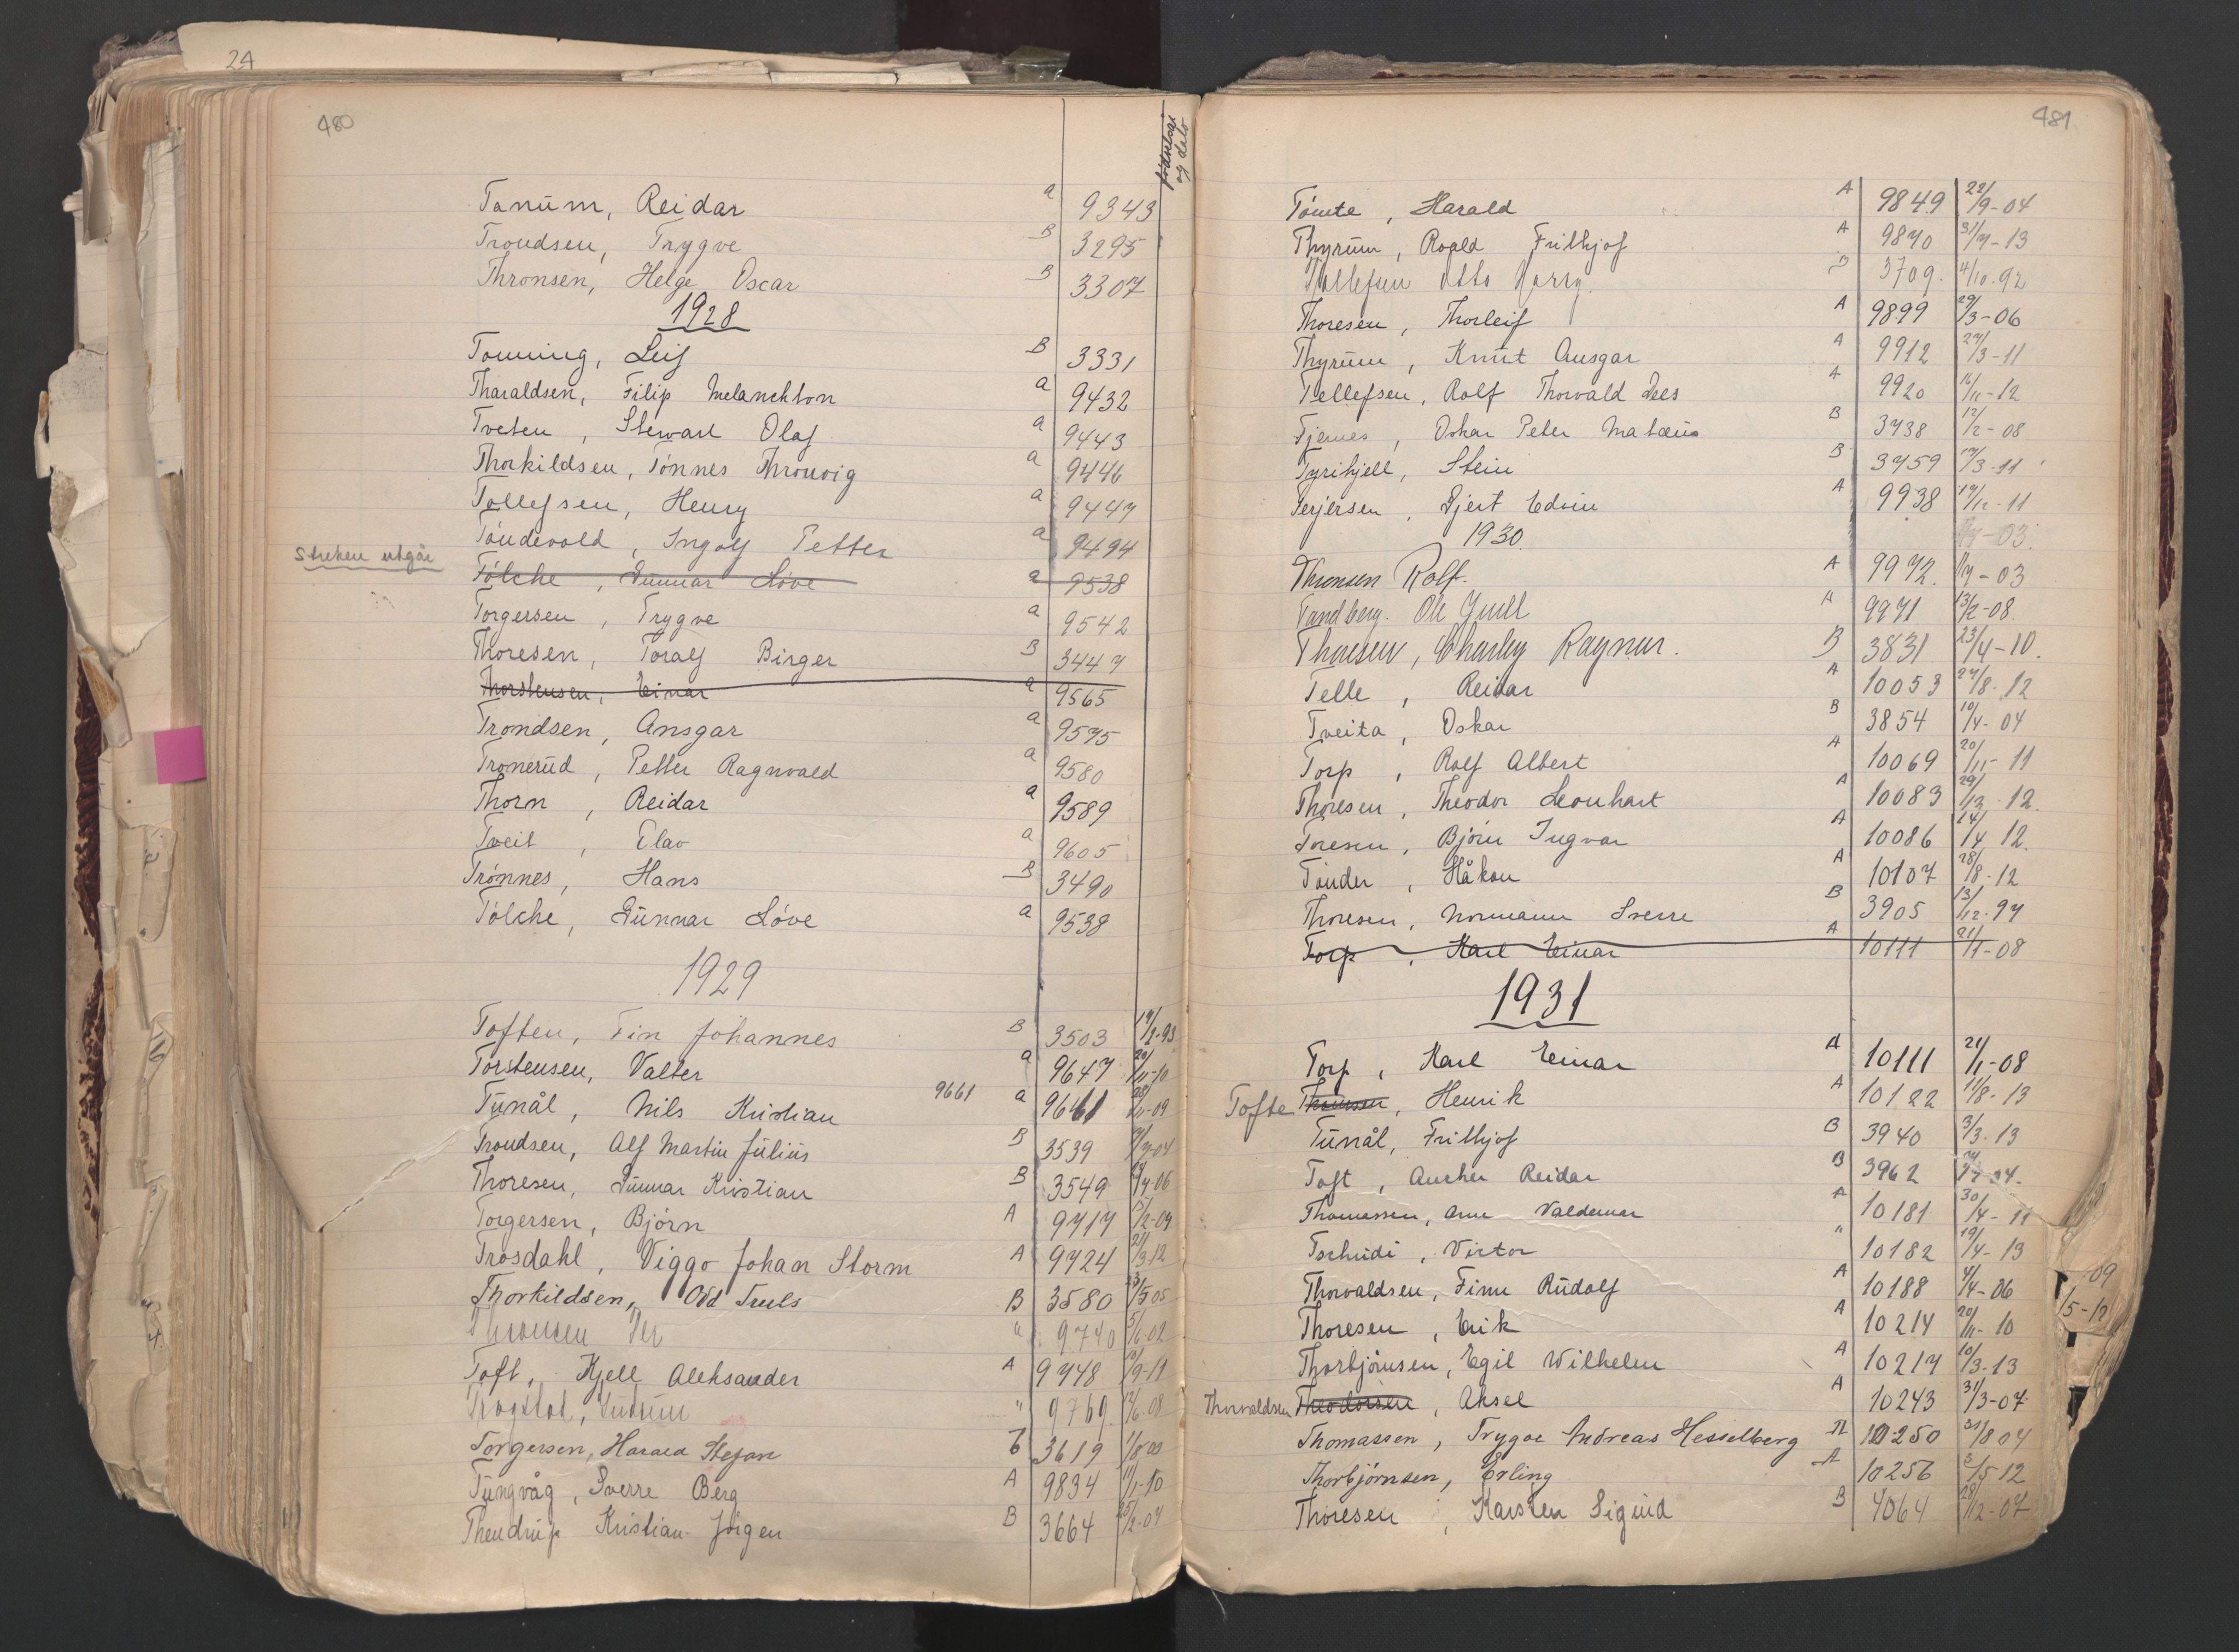 24
480
fødselsår og dato
Tanum, Reidar a 9343
Trondsen, Trygve B 3295
Thronsen, Helge Oscar B 3307
1928
Tonning, Leif B 3331
Tharaldsen, Filip Melanchton a 9432
Tveten, Stewart Olaf a 9443
Thorkildsen, Tønnes Thronvig a 9446
Tollefsen, Henry a 9447
Tøndevold, Ingolf Petter a 9494
Streken utgår Tølche, Gunnar Løve a 9538
Torgersen, Trygve a 9542
Thoresen, Toralf Birger B 3447
Thorstensen, Einar a 9565
Trondsen, Ansgar a 9575
Tronerud, Petter Ragnvald a 9580
Thorn, Reidar a 9589
Tveit, Olav a 9605
Trønnes, Hans B 3490
Tølche, Gunnar Løve a 9538
1929
Toften, Fin Johannes B 3503
Torstensen, Valter a 9647
Tunål, Nils Kristian 9661 a 9661
Trondsen, Alf Martin Julius B 3539
Thoresen, Gunnar Kristian B 3549
Torgersen, Bjørn A 9717
Trosdahl, Viggo Johan Storm A 9724
Thorkildsen, Odd Truls B 3580
Thronsen " 9740
Toft, Kjell Aleksander A 9748
" 9769
Torgersen, Harald Stefan b 3619
Tungvåg, Sverre Berg A 9834 11/1-10
Thendrup Kristian Jørgen B 3664
481
Tømte, Harald A 9849 22/9-04
Thyrum, Roald Frithjof A 9870 31/7-13
Tollefsen Otto Harry B 3709. 4/10.92
Thoresen, Thorleif A 9899 29/3-06
Thyrum, Knut Ansgar A 9912 27/3-11
Tellefsen, Rolf Thorvald Dees A 9920 16/11-12
Tjernes, Oskar Peter Matæus B 3738 12/2-08
Tyrihjell, Stein B 3759 17/3-11
Terjersen, Gjert Edvin A 9938 17/12-11
1930.
Thronsen Rolf. A 9972. 7/7-03
Tandberg. Ole Juell A 9971 13/2-08.
Thoresen, Charley Ragnar. B 3831 23/4-10.
Telle, Reidar A 10053 27/8-12
Tveita, Oskar B 3854 10/4-04
Torp, Rolf Albert A 10069 20/11-11
Thoresen, Theodor Leonhart A 10083 29/12.12.
Toresen, Bjørn Ingvar A 10086 14/4 12.
Tønder, Håkon A 10107 28/8-12
Thoresen, Normann Sverre B 3905 13/12.97
Torp, Karl Einar A 10111 21/1-08
1931
Torp, Karl Einar A 10111 21/1-08
Tofte Thomassen, Henrik A 10122 11/8-13
Tunål, Frithjof B 3940 3/3.13
Toft, Ancher Reidar B 3962
Thomassen, Arne Valdemar A 10181 30/4-11
Tschudi, Victor " 10182 19/4-13
Thorvaldsen, Finn Rudolf A 10188 4/4-06
Thoresen, Erik A 10214 20/11-10
Thorbjørnsen, Egil Wilhelm A 10217 10/3-13
Thorvaldsen Theodorsen, Aksel A 10243 31/3-07
Thomassen, Trygve Andreas Hesselberg A 10250 30/8 04
Thorbjørnsen, Erling A 10256 3/5 12
Thoresen, Karsten Sigurd B 4064 28/12-07
09
/5-12